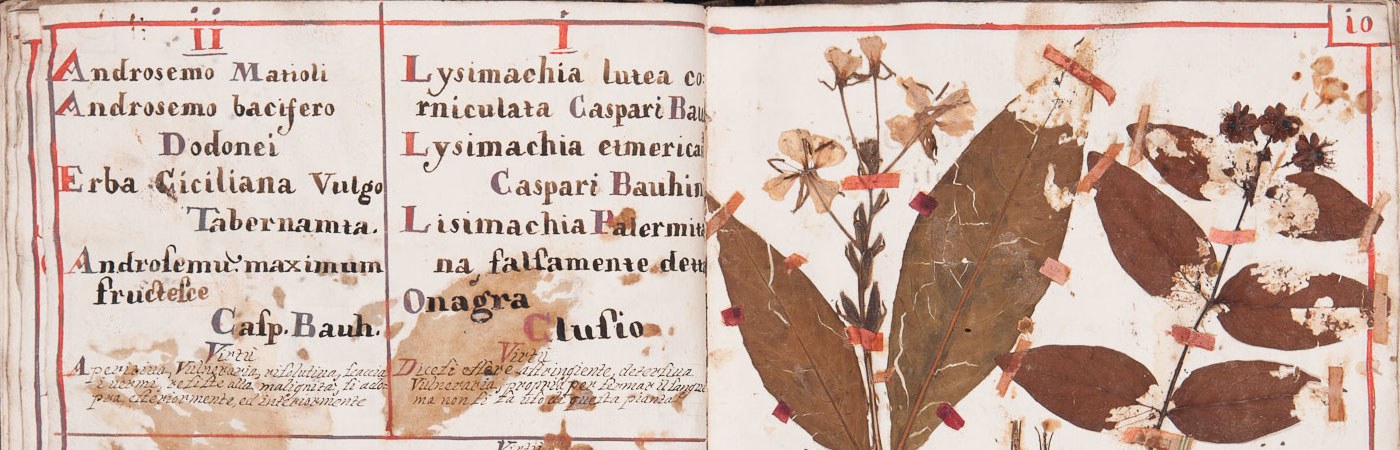 ii
Androsemo Matioli
Androsemo bacifero
Dodonei
Erba Ciciliana Vulgo
Tabernamta.
Androſemũ. maximum
fructeſce
Caſp. Bauh.
Virtù
Aperitiva, Vulneraria, riſolutiva, ſcaccia
i vermi, reſiste alla malignità, ſi ado=
pra eſteriormente, ed interiormente
I
Lysimachia lutea co:
rniculata Caspari Bau
Lysimachia
Caspari Bauhin
Lisimachia Palermita
na, falſamente dett
Onagra
Cluſio
Virtù
Diceſi eſſere aſtringiente, deterſiva
Vulneraria, propria per fermar il ſangue
ma non ſi fà uſo di queſta pianta
Virtù
io